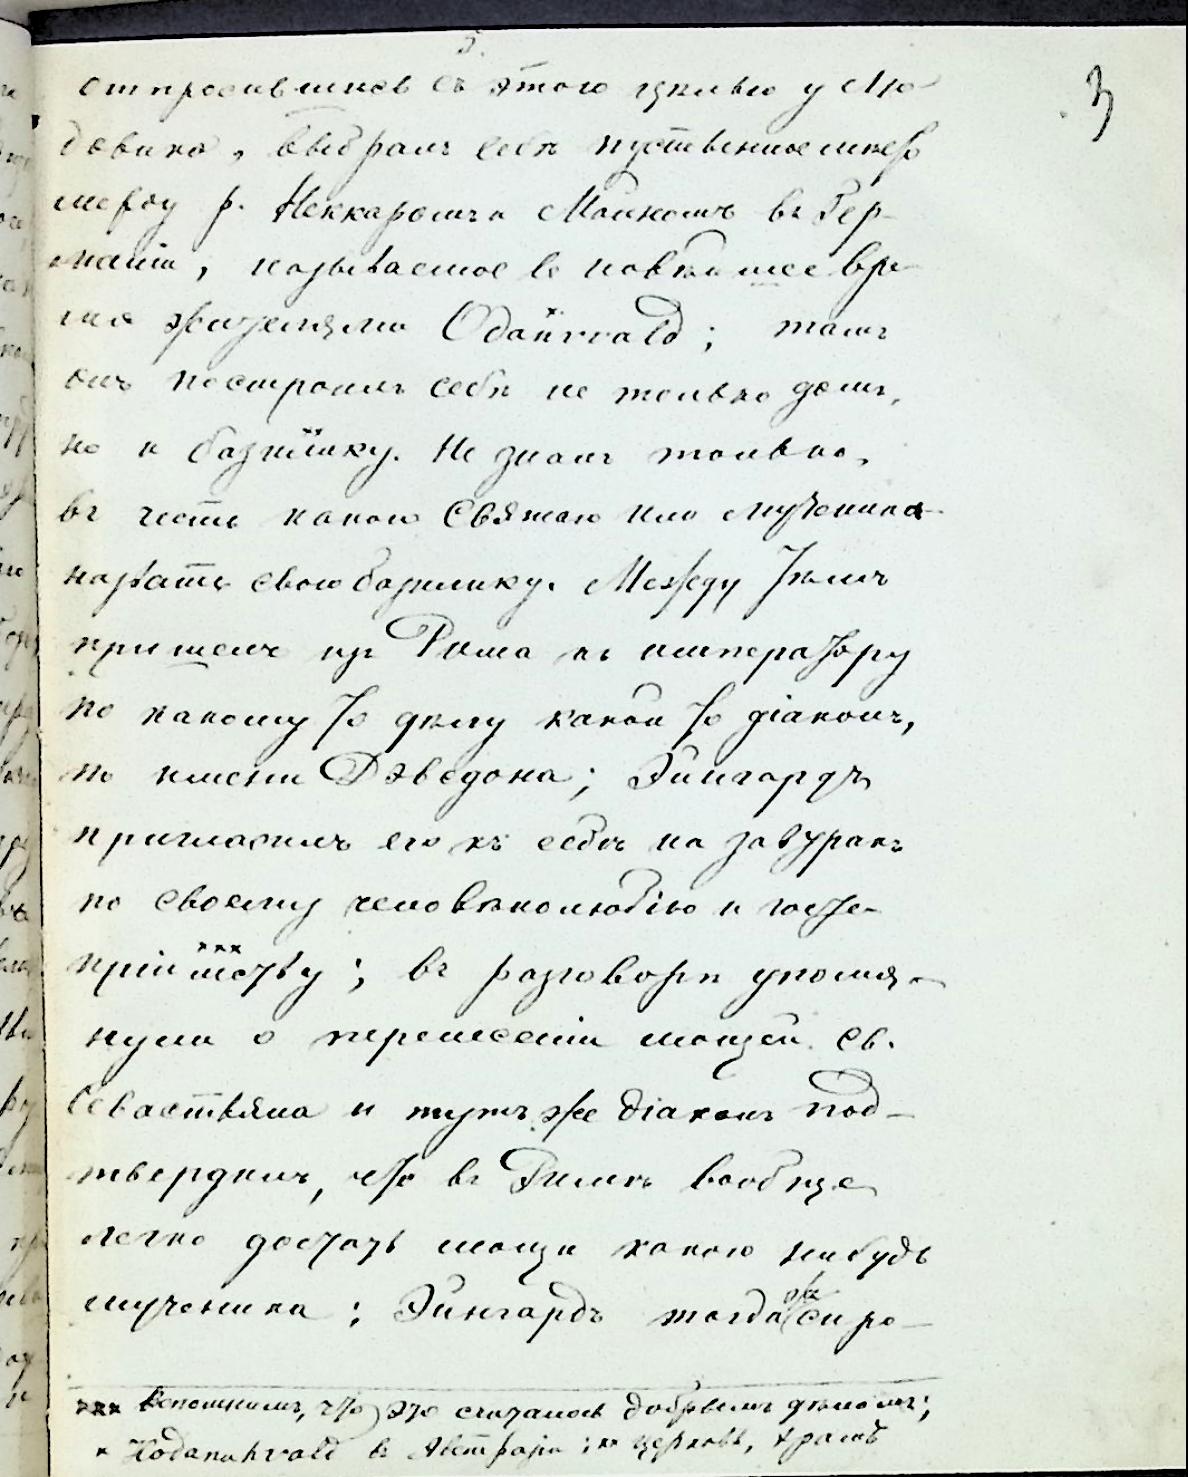 5.
3
отпросившись съ этою цѣлью у Лю-
довика, выбралъ себѣ пустынное мѣсто
между р. Неккаромъ и Майномъ въ Гер-
маніи, называемое въ новѣйшее вре-
мя жителями Odanwald*; тамъ
онъ построилъ себѣ не только домъ,
но и базилику**. Не зналъ только,
въ честь какого святаго или мученика
назвать свою базилику. Между тѣмъ
пришелъ изъ Рима къ императору
по какому то дѣлу какой то діаконъ,
по имени Дэведона; Эйнгардъ
пригласилъ его къ себѣ на завтракъ
по своему человѣколюбію и госте-
пріимству***; въ разговорѣ упомя-
нули о перенесеніи мощей св.
Севастьяна и тутъ же діаконъ под-
твердилъ, что въ Римѣ вообще
легко достать мощи какого нибудь
мученика; Эйнгардъ тогда же спро-
*** Вспомнимъ, что это считалось добрымъ дѣломъ;
* Hodanahvald въ Австразіи; ** церковь, храмъ